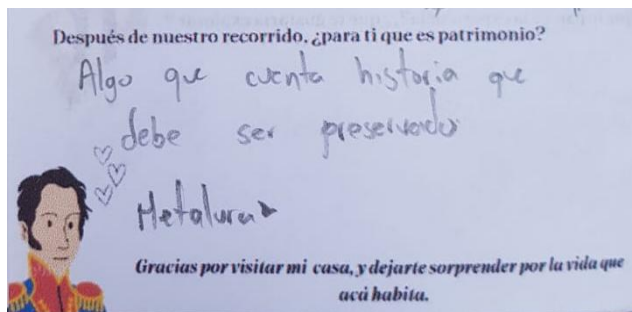 Después de nuestro recorrido, ¿para ti que es patrimonio?
Algo que cuenta historia que
debe ser preservado
Gracias por visitar mi casa, y dejarte sorprender por la vida que
acá habita.